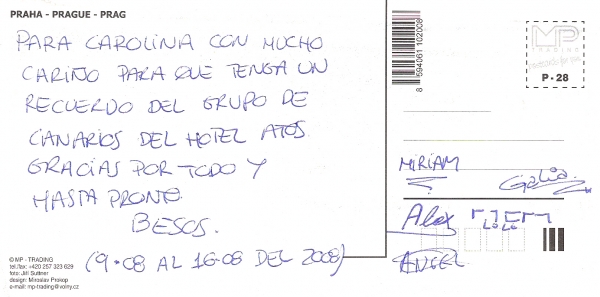 PRAHA - PRAGUE - PRAG
PARA CAROLINA CON MUCHO
CARIÑO PARA QUE TENGA UN
RECUERDO DEL GRUPO DE
CANARIOS DEL HOTEL ATOS.
GRACIAS POR TODO Y
HASTA PRONTO.
BESOS.
(9·08 AL 16·08 DEL 2008)
© MP - TRADING
tel./fax: +420 257 323 629
foto: Jiří Suttner
design: Miroslav Prokop
e-mail: mp-trading@volny.cz
8 594061 102008
MP
TRADING
P - 28
MIRIAM
Galia
Alex
LOLO
ANGEL